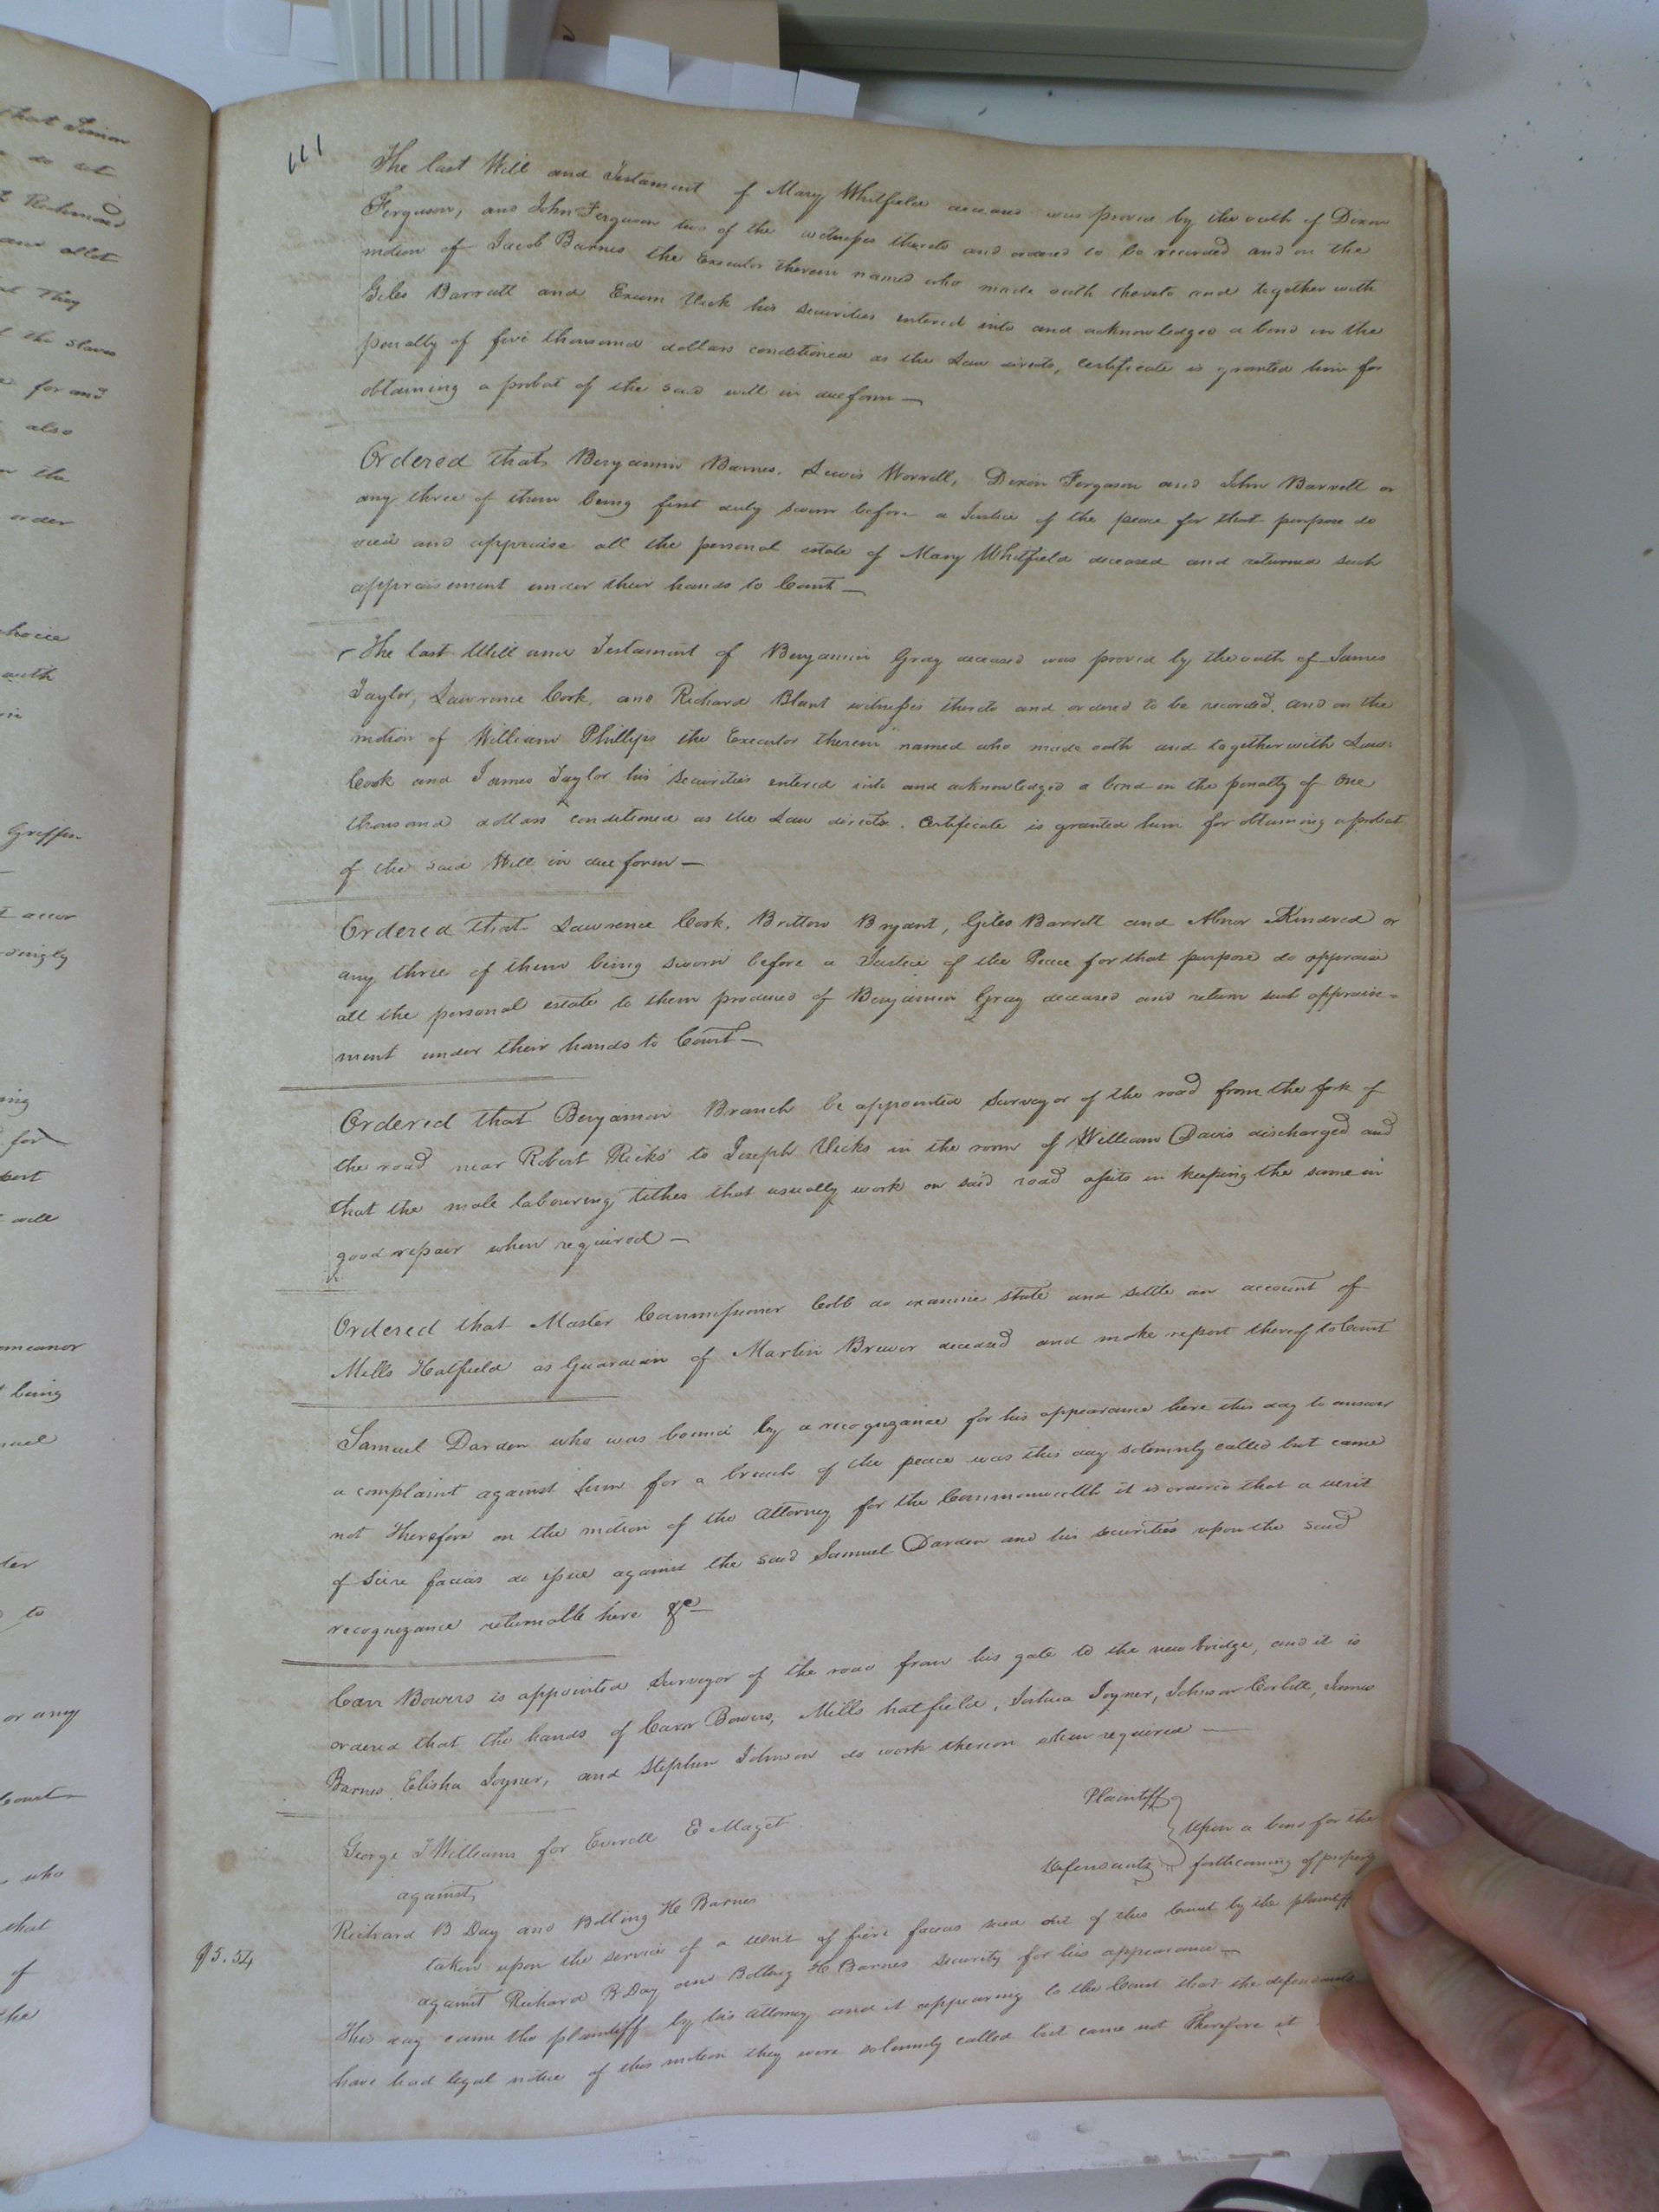 that Simon
do set
Richmond
and allot
They
the slaves
for and
also
the
order
choice
with
Griffin
accor
dingly
ing
for
port
will
emeanor
being
uel
ter
to
or any
Court
who
that
of
the
111
The last Will and Testament of Mary Whitfield deceased was proved by the oath of Dixon
Ferguson, and John Ferguson two of the witnesses thereto and ordered to be recorded and on the
motion of Jacob Barnes the Executor therein named who made oath thereto and together with
Giles Barrott and Exum Vick his securities entered into and acknowledged a bond in the
penalty of five thousand dollars conditioned as the Law directs, certificate is granted him for
obtaining a probat of the said will in due form —
Ordered that Benjamin Barnes. Lewis Worrell, Dixon Ferguson and John Barrett or
any three of them being first duly sworn before a Justice of the peace for that purpose do
view and appraise all the personal estate of Mary Whitfield deceased and returned such
appraisement under their hands to Court —
The last Will and Testament of Benjamin Gray deceased was proved by the oath of James
Taylor, Lawrence Cook, and Richard Blunt witnesses thereto and ordered to be recorded. and on the
motion of William Phillips the Executor therein named who made oath and together with Law:
Cook and James Taylor his securities entered into and acknowledged a bond in the penalty of One
thousand dollars conditioned as the Law directs. Certificate is granted him for obtaining a probat
of the said Will in due form —
Ordered that Lawrence Cook, Britton Bryant, Giles Barrett and Abner Kindred or
any three of them being sworn before a Justice of the Peace for that purpose do appraise
all the personal estate to them produced of Benjamin Gray deceased and return such appraise-
ment under their hands to Court —
Ordered that Benjamin Branch be appointed Surveyor of the road from the fork of
the road near Robert Ricks' to Joseph Vicks in the room of William Davis discharged and
that the male labouring tithes that usually work on said road assist in keeping the same in
good repair when required —
Ordered that Master Commissioner Cobb do examine state and settle an account of
Mills Hatfield as Guardian of Martin Brewer deceased and make report thereof to Court
Samuel Darden who was bound by a recognizance for his appearance here this day to answer
a complaint against him for a breach of the peace was this day solemnly called but came
not Therefore on the motion of the Attorney for the Commonwealth it is ordered that a writ
of Scire facias do issue against the said Samuel Darden and his securities upon the said
recognizance returnable here &c —
Carr Bowers is appointed Surveyor of the road from his gate to the new bridge, and it is
ordered that the hands of Carr Bowers, Mills hatfield, Joshua Joyner, Johnson Corbitt, James
Barnes Elisha Joyner, and Stephen Johnson do work thereon when required —
George J Williams for Everett E Maget. Plaintiff
against
Upon a bond for the
Richard B Day and Bolling H Barnes Defendants forthcoming of property
taken upon the service of a writ of fieri facias sued out of this Court by the plaintiff
$5.54
against Richard B Day and Bolling H Barnes security for his appearance —
This day came the plaintiff by his attorney and it appearing to the Court that the defendants
have had legal notice of this motion they were solemnly called but came not Therefore it